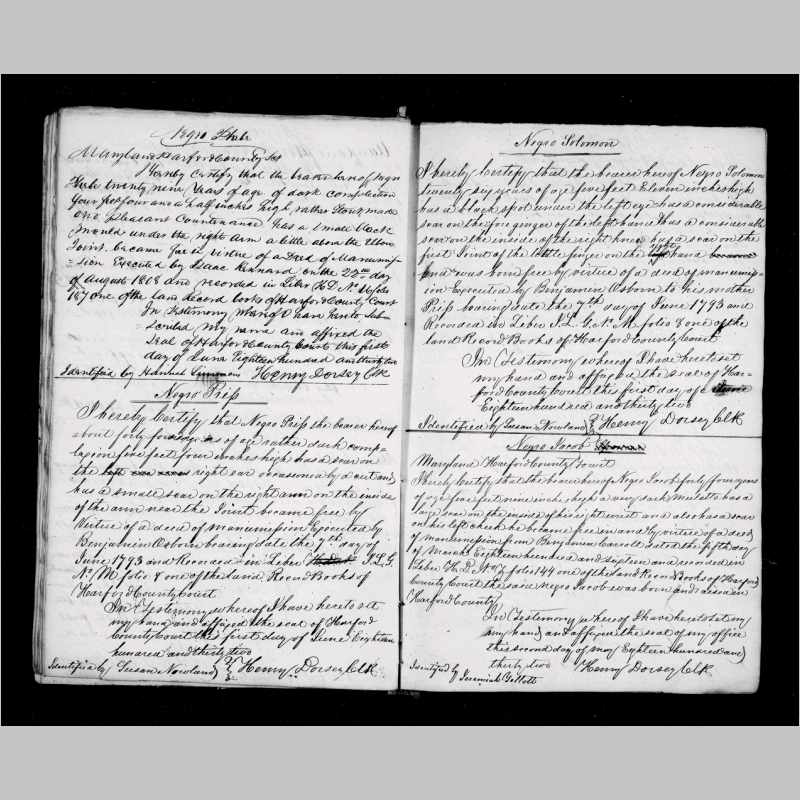 Negro Phebe
Maryland Harford County Sct
I hereby Certify that the bearer hereof Negro
Phebe twenty nine Years of age of dark complection
four feet four and a half inches high, rather Stout made
and Pleasant Countenance has a small black
mould under the right Arm a little above the Elbow
Joint. became free in virtue of a Deed of Manumis=
=sion Executed by Isaac Kennard on the 22nd day
of August 1808 and recorded in Liber H.D. No folio
187 one of the land record books of Harford County Court
In Testimony Whereof I have hereto Sub=
scribed my name and affixed the
Seal of Harford County Court this first
day of June Eighteen hundred and thirty two
Identified by Hannah Henry Dorsey Clk
Negro Priss
I hereby Certify that Negro Priss the bearer hereof
about forty four years of age rather dark comp=
lexion five feet four inches high has a scar on
the left right ear occasioned by a cut and
has a small scar on the right arm on the inside
of the arm near the Joint became free by
Virtue of a deed of manumission Executed by
Benjamin Osborn bearing date the 7th day of
June 1793 and Recorded in Liber J.L.G.
No M folio 8 one of the Land Record Books of
Harford County Court
In Testimony whereof I have hereto set
my hand and affixed the seal of Harford
County Court this first day of June Eighteen
hundred and thirty two
Identified by Susan Nowland Henry Dorsey Clk
Negro Solomon
I hereby Certify that the bearer hereof Negro Solomon
twenty six years of age five feet Eleven inches high
has a black spot under the left eye has a considerable
scar on the fore finger of the left hand has a considerable
scar on the inside of the right knee has a scar on the
first Joint of the little finger on the left right hand
and was born free by virtue of a deed of manumiss=
ion Executed by Benjamin Osborn to his mother
Priss bearing date the 7th day of June 1793 and
Recorded in Liber J.L.G. No. M. folio 8 one of the
land Record Books of Harford County Court
In Testimony whereof I have hereto set
my hand and affixed the seal of Har=
ford County Court this first day of
Eighteen hundred and thirty two
Identified by Susan Nowland Henry Dorsey Clk
Negro Jacob
Maryland Harford County Court
I hereby Certify that the bearer hereof Negro Jacob forty four years
of age five feet nine inches high a very dark Mulatto has a
large scar on the inside of his right wrist and also has a scar
on his left cheek he became free in and by virtue of a deed
of manumission from Benjamin dated the fifth day
of March Eighteen hundred and sixteen and recorded in
Liber H.D. No folio 144 one of the land Record Books of Harford
County Court the said Negro Jacob was born and raised in
Harford County
In Testimony whereof I have hereto set my
my hand and affixed the seal of my office
this second day of may Eighteen Hundred and
thirty two Henry Dorsey Clk
Identified by
Jeremiah Gillott